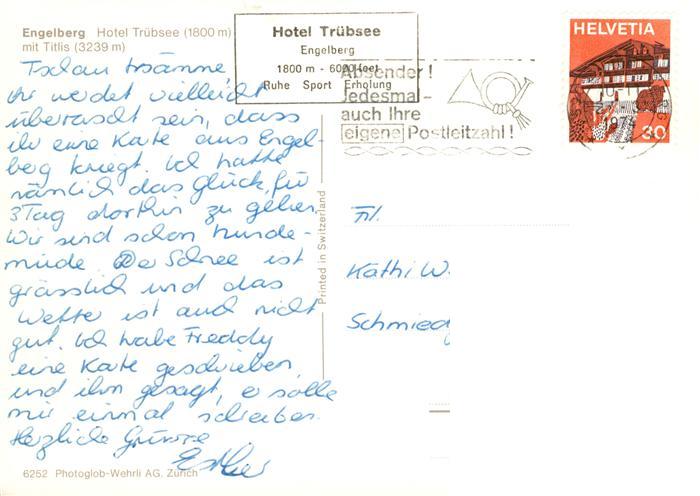 Engelberg Hotel Trübsee (1800 m)
mit Titlis (3239 m)
Hotel Trübsee
Engelberg
1800 m - 6000 feet
Ruhe Sport Erholung
Absender!
Jedesmal-
auch Ihre
eigene Postleitzahl!
HELVETIA
30
Tschau zsämme,
Ihr werdet vielleicht
überascht sein, dass
ihr eine Kate aus Engel-
berg kriegt. Ich hatte
nämlich das Glück, für
3 Tag dorthin zu gehen.
Wir sind schon hunde-
müde. Der Schnee ist
grässlich und das
Wetter ist auch nicht
gut. Ich habe Freddy
eine Kate geschrieben
und ihm gesagt, er solle
mir einmal schreiben.
Herzliche Grüsse
Esther
Printed in Switzerland
Frl.
Kathi W.
Schmied
6252 Photoglob-Wehrli AG. Zürich